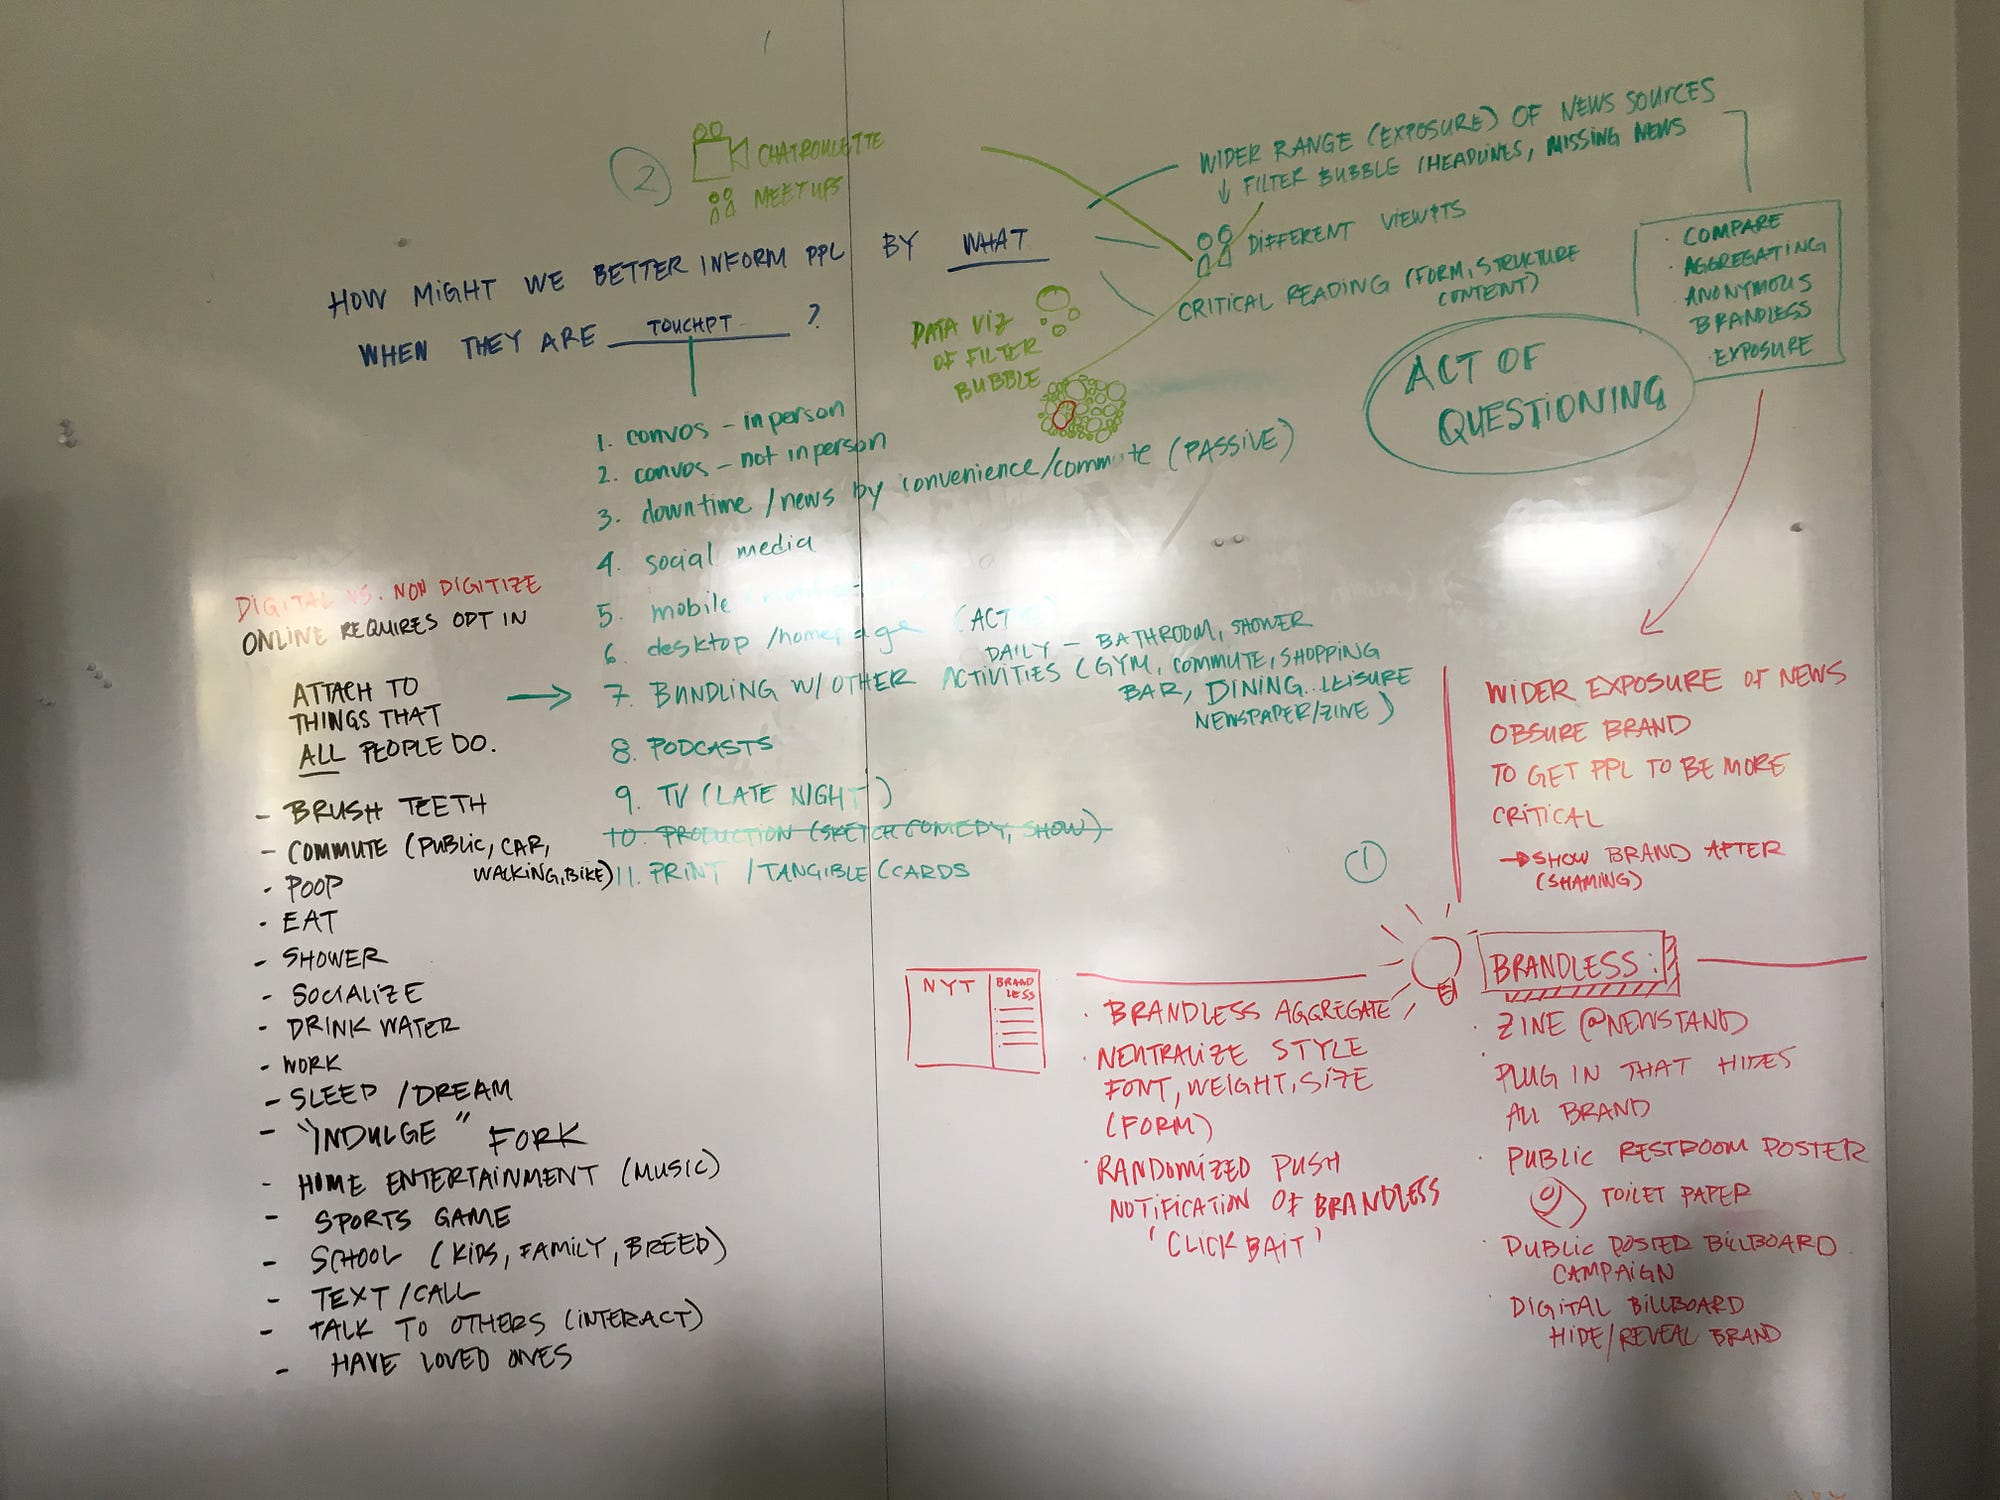 2
CHATROULETTE
MEETUPS
HOW MIGHT WE BETTER INFORM PPL BY WHAT
WHEN THEY ARE TOUCHPT ?
WIDER RANGE (EXPOSURE) OF NEWS SOURCES
↓ FILTER BUBBLE (HEADLINES, MISSING NEWS
DIFFERENT VIEWPTS
CRITICAL READING (FORM, STRUCTURE
CONTENT)
· COMPARE
· AGGREGATING
· ANONYMOUS
BRANDLESS
· EXPOSURE
ACT OF
QUESTIONING
DATA VIZ
OF FILTER
BUBBLE
1. convos - in person
2. convos - not in person
3. downtime / news by convenience/commute (PASSIVE)
4. social media
5. mobile
6. desktop /homepage (ACT
DAILY - BATHROOM, SHOWER
7. BUNDLING W/ OTHER ACTIVITIES (GYM, COMMUTE, SHOPPING
BAR, DINING.. LEISURE
NEWSPAPER/ZINE)
8. PODCASTS
9. TV (LATE NIGHT)
10. PRODUCTION (SKETCH COMEDY, SHOW)
11. PRINT / TANGIBLE (CARDS
DIGITAL VS. NON DIGITIZE
ONLINE REQUIRES OPT IN
ATTACH TO
THINGS THAT
ALL PEOPLE DO.
- BRUSH TEETH
- COMMUTE (PUBLIC, CAR,
WALKING, BIKE)
- POOP
- EAT
- SHOWER
- SOCIALIZE
- DRINK WATER
- WORK
- SLEEP / DREAM
- "INDULGE" FORK
- HOME ENTERTAINMENT (MUSIC)
- SPORTS GAME
- SCHOOL (KIDS, FAMILY, BREED)
- TEXT / CALL
- TALK TO OTHERS (INTERACT)
- HAVE LOVED ONES
WIDER EXPOSURE OF NEWS
OBSURE BRAND
TO GET PPL TO BE MORE
CRITICAL
→ SHOW BRAND AFTER
(SHAMING)
1
NYT
BRAND
LESS
· BRANDLESS AGGREGATE
· NEUTRALIZE STYLE
FONT, WEIGHT, SIZE
(FORM)
· RANDOMIZED PUSH
NOTIFICATION OF BRANDLESS
'CLICK BAIT'
BRANDLESS:
· ZINE @NEWSTAND
· PLUG IN THAT HIDES
ALL BRAND
· PUBLIC RESTROOM POSTER
TOILET PAPER
· PUBLIC POSTER BILLBOARD
CAMPAIGN
· DIGITAL BILLBOARD
HIDE/REVEAL BRAND